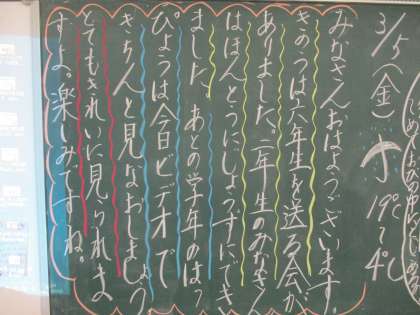 3/5(金) 19℃〜4℃
みなさんおはようございます。
きのうは六年生を送る会が
ありました。二年生のみなさん
はほんとうにじょうずにでき
ました。あとの学年のはっ
ぴょうは今日ビデオで
きちんと見なおしましょう
とてもきれいに見られま
すよ。楽しみですね。